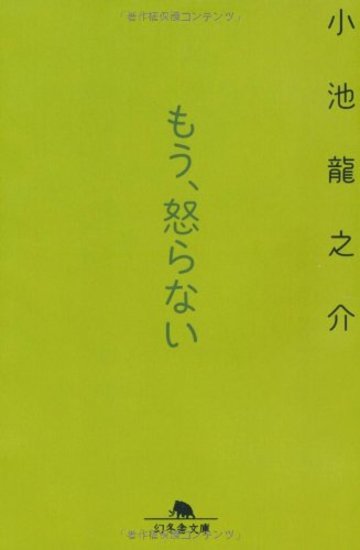 「著作権保護コンテンツ」
小池龍之介
もう、怒らない
幻冬舎文庫
「著作権保護コンテンツ」